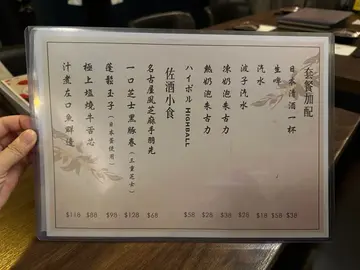 套餐加配
日本清酒一杯 $38
生啤 $58
汽水 $18
波子汽水 $28
凍奶泡朱古力 $28
熱奶泡朱古力 $28
ハイボール HIGHBALL $58
佐酒小食
名古屋風芝麻手羽先 $68
一口芝士黑豚卷(三重芝士) $128
蓬鬆玉子(日本蛋使用) $98
極上塩燒牛舌芯 $88
汁煮左口魚鮮邊 $118